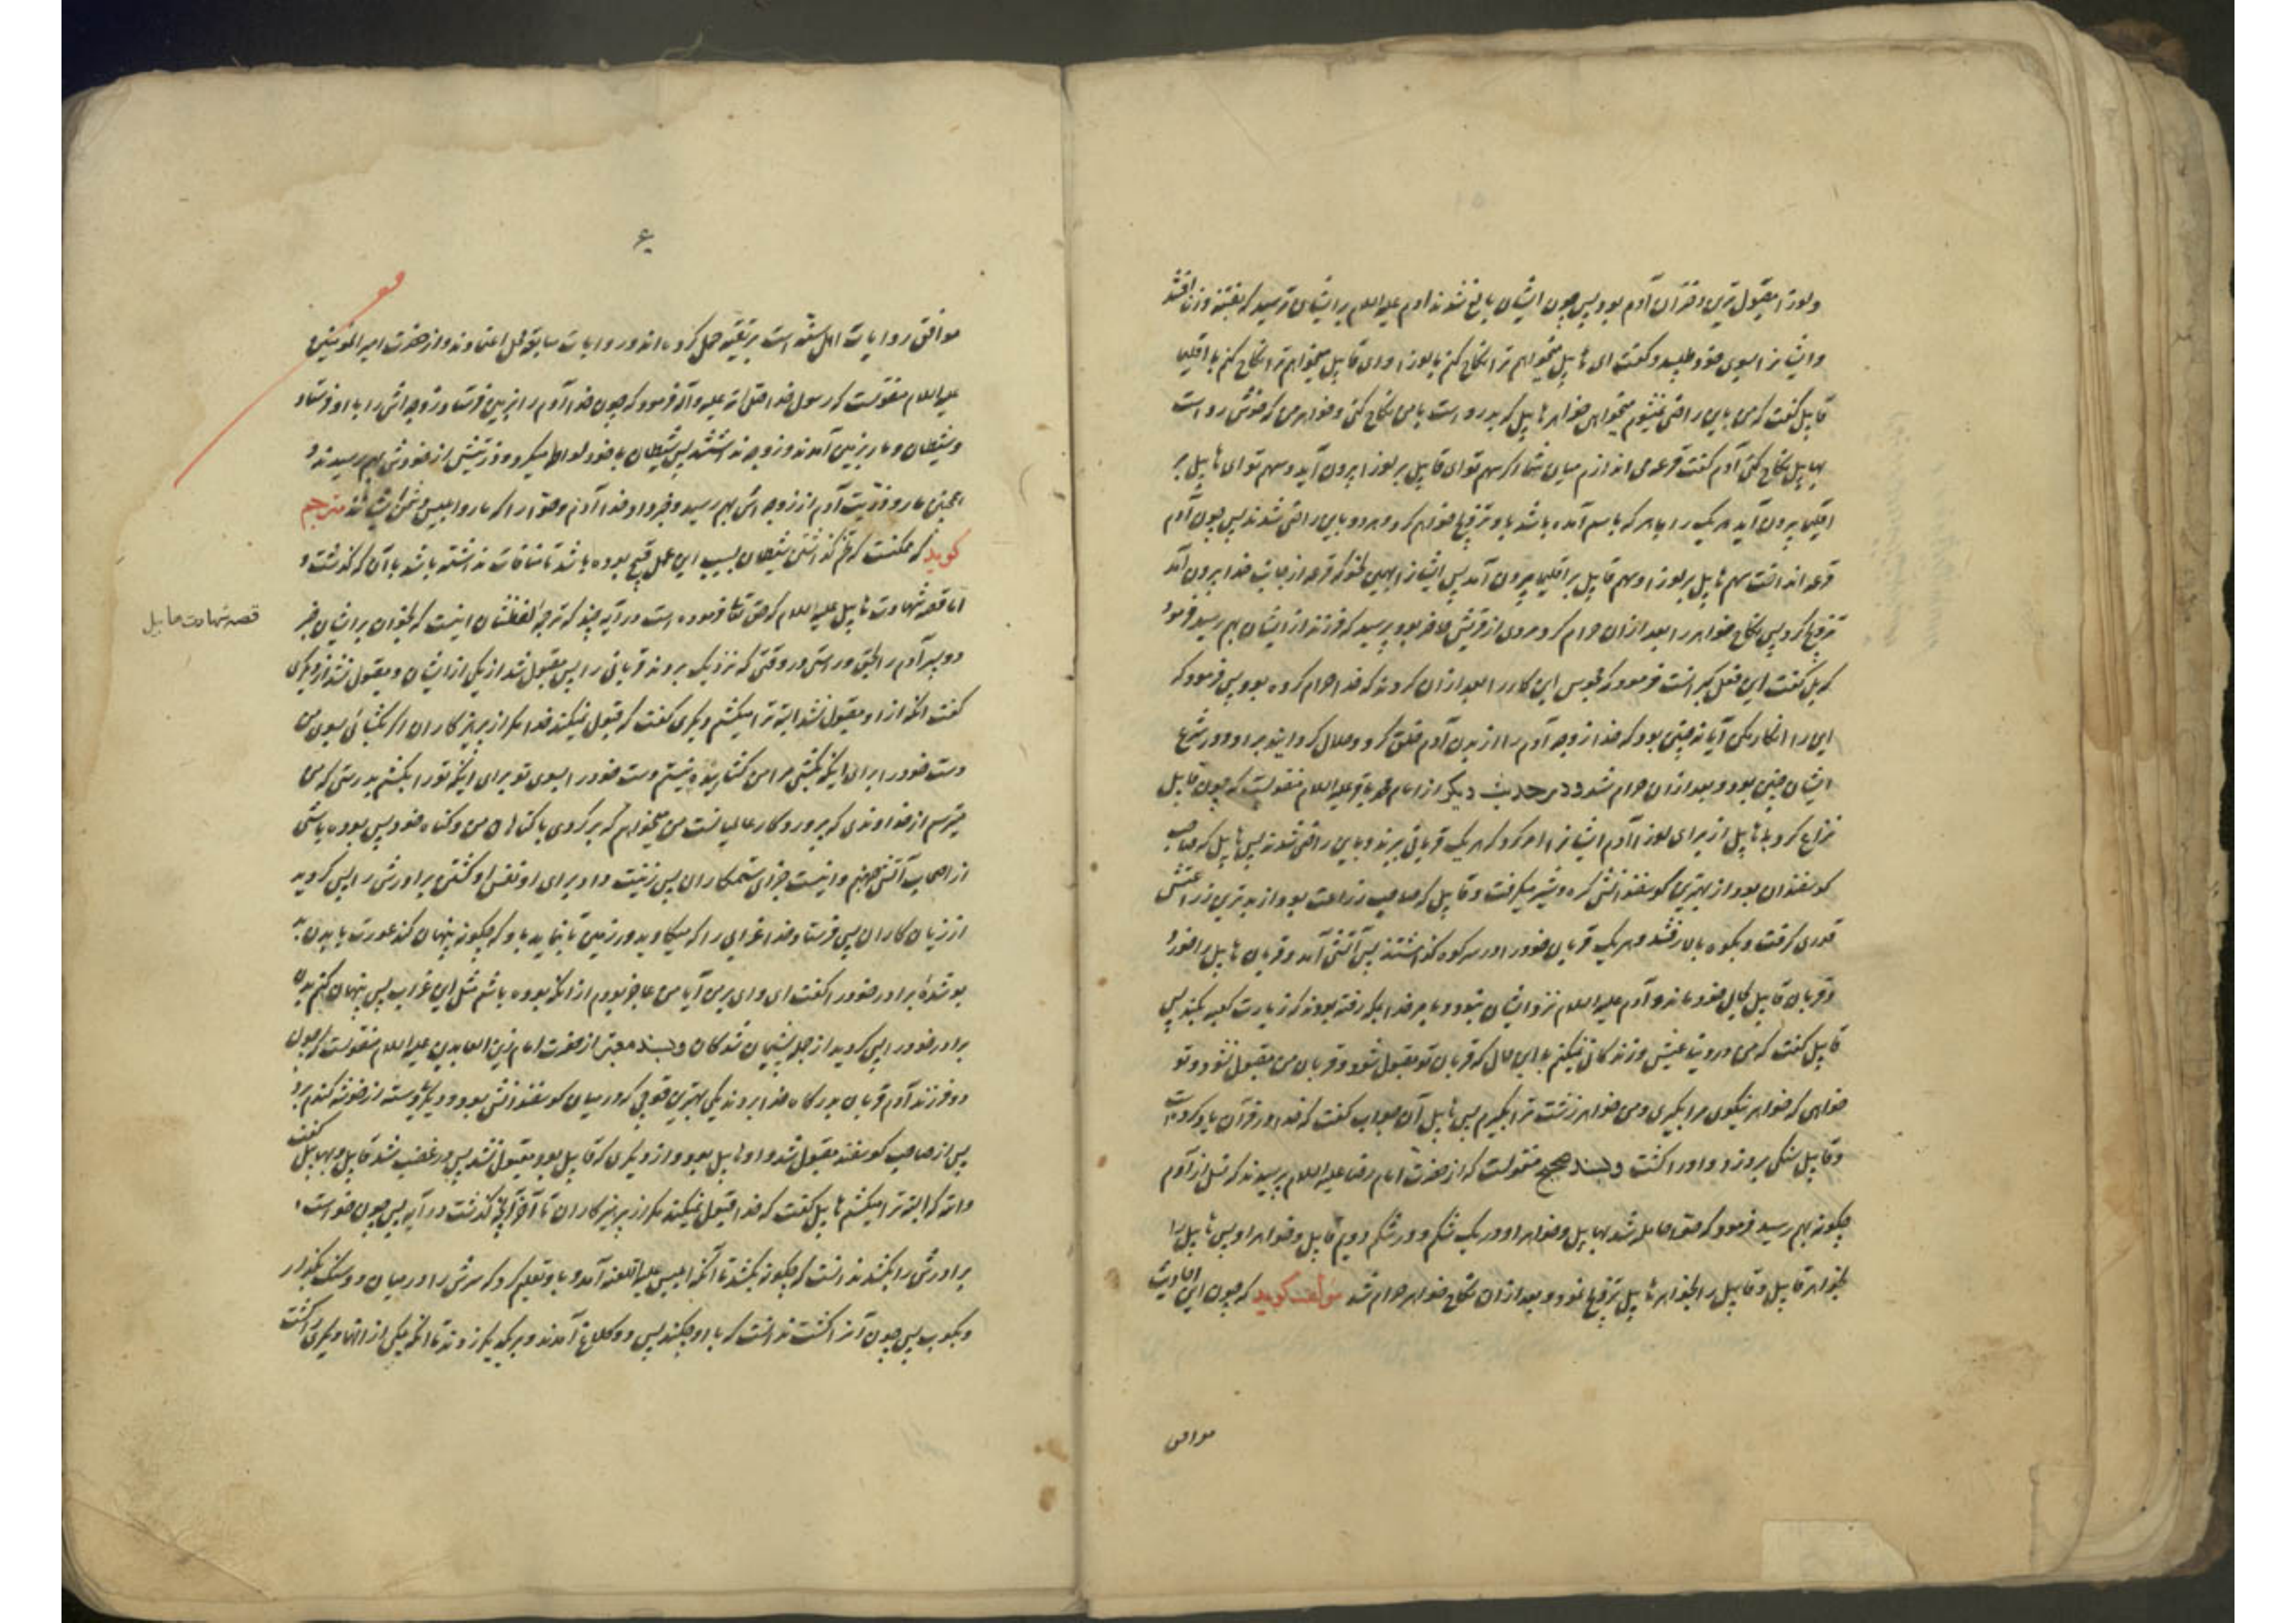 ولوزا مقبول ترین دختران آدم بود پس چون ایشان بالغ شدند آدم علیه السلام بر ایشان ترسید که بفتنه زنا افتند
و ایشانرا بسوی خود طلبید و گفت ای هابیل میخواهم ترا نکاح کنم با لوزا و ای قابیل میخواهم ترا نکاح کنم با اقلیما
قابیل گفت که من باین راضی نمیشوم میخواهی خواهر هابیل که بدرو است بامن نکاح کنی و خواهر من که خوش رو است
بهابیل نکاح کنی آدم گفت قرعه می اندازم میان شما اگر سهم تو ای قابیل بر لوزا بیرون آید و سهم تو ای هابیل بر
اقلیما بیرون آید هر یک را با هر که باسم آمده باشد باو تزویج خواهم کرد و هر دو باین راضی شدند پس چون آدم
قرعه انداخت سهم هابیل بر لوزا و سهم قابیل بر اقلیما بیرون آمد پس ایشانرا بهمین نحو که قرعه از جانب خدا بیرون آمد
تزویج کرد پس نکاح خواهر را بعد از ان حرام کرد مردی از قریش حاضر بود پرسید که فرزند از ایشان بهم رسید فرمود
که بلی گفت این فعل گبرانست فرمود که مجوس این کار را بعد از ان کردند که خدا حرام کرده بود پس فرمود که
این را انکار مکن آیا نه چنین بود که خدا زوجه آدم را از بدن آدم خلق کرد و حلال گردانید بر او و در شرع
ایشان چنین بود و بعد از ان حرام شد و در حدیث دیگر از امام محمد باقر علیه السلام منقولست که چون قابیل
نزاع کرد با هابیل از برای لوزا آدم ایشانرا امر کرد که هر یک قربانی ببرند و باین راضی شدند پس هابیل که صاحب
گوسفندان بود از بهترین گوسفندانش کره و شیر میگرفت و قابیل که صاحب زراعت بود از بدترین زراعتش
قدری گرفت و بکوه بالا رفتند و هر یک قربان خود را در سر کوه گذاشتند پس آتش آمد و قربان هابیل را خورد
و قربان قابیل بحال خود ماند و آدم علیه السلام نزد ایشان نبود و بامر خدا بمکه رفته بودند که زیارت کعبه بکند پس
قابیل گفت که من در دنیا عیش و زندگانی نمیکنم با این حال که قربان تو مقبول شود و قربان من مقبول نشود و تو
خواهی که خواهر نیکوی مرا بگیری و من خواهر زشت ترا بگیرم پس هابیل آن جواب گفت که خدا در قرآن یاد کرده است
و قابیل سنگی بر او زد و او را کشت و بسند صحیح منقولست که از حضرت امام رضا علیه السلام پرسیدند که نسل از آدم
چگونه بهم رسید فرمود که حوا حامله شد بهابیل و خواهر او در یک شکم و در شکم دویم قابیل و خواهر او پس هابیل را
بخواهر قابیل و قابیل را بخواهر هابیل تزویج نمود و بعد از ان نکاح خواهر حرام شد مولف گوید که چون این احادیث
موافق
۶
موافق روایات اهل سنه است بر تقیه حمل کرده اند و روایات سابقه محل اعتمادند و از حضرت امیر المؤمنین
علیه السلام منقولست که رسول خدا صلی الله علیه و آله فرمود که چون خدا آدم را بزمین فرستاد زوجه اش را با او فرستاد
و شیطان و مار بزمین آمدند و زوجه نداشتند پس شیطان با خود لواط میکرد و ذریتش از خودش بهم رسیدند و
همچنین مار و ذریت آدم از زوجه اش بهم رسید و خبر داد خدا آدم و حوا را که مار و ابلیس دشمن ایشانند مترجم
گوید که ممکنست که تخم گذاشتن شیطان بسبب این عمل قبیح بوده باشد تا منافات نداشته باشد با آن که گذشت و
اما قصه شهادت هابیل علیه السلام که حق تعالی فرموده است در آیه چند که ترجمه لفظشان اینست که بخوان بر ایشان خبر
دو پسر آدم را بحق و راستی در وقتی که نزدیک بردند قربانی را پس مقبول شد از یکی از ایشان و مقبول نشد از دیگری
گفت آنکه از او مقبول نشد البته ترا میکشم دیگری گفت که قبول نمیکند خدا مگر از پرهیزکاران اگر بگشائی بسوی من
دست خود را برای اینکه بکشی مرا من گشاینده نیستم دست خود را بسوی تو برای اینکه تو را بکشم بدرستی که من
میترسم از خداوندی که پروردگار عالمیانست من میخواهم که برگردی با گناهان من و گناه خود پس بوده باشی
از اصحاب آتش جهنم و اینست جزای ستمکاران پس زینت داد برای او نفس او کشتن برادرش را پس گردید
از زیان کاران پس فرستاد خدا غرابی را که میکاوید در زمین تا بنماید باو که چگونه پنهان کند عورت یا بدن
پوشدهٔ برادر خود را گفت ای وای بر من آیا من عاجز بودم از آنکه بوده باشم مثل این غراب پس پنهان کنم بدن
برادر خود را پس گردید از جمله پشیمان شدگان و بسند معتبر از حضرت امام زین العابدین علیه السلام منقولست که چون
دو فرزند آدم قربان بدرگاه خدا بردند یکی بهترین قوچی که در میان گوسفندانش بود و دیگری دسته از خوشه گندم برد
پس از صاحب گوسفند مقبول شد و او هابیل بود و از دیگری که قابیل بود مقبول نشد پس در غضب شد قابیل و بهابیل گفت
والله که البته ترا میکشم هابیل گفت که خدا قبول نمیکند مگر از پرهیزکاران تا آخر آنچه گذشت در آیه پس چون خواست
برادرش را بکشد ندانست که چگونه بکشد تا آنکه ابلیس علیه اللعنه آمد و باو تعلیم کرد که سرش را در میان دو سنگ بگذار
و بکوب پس چون آنرا کشت ندانست که با او چکند پس دو کلاغ آمدند و بر یکدیگر زدند تا آنکه یکی از آنها دیگری را کشت
قصه شهادت هابیل